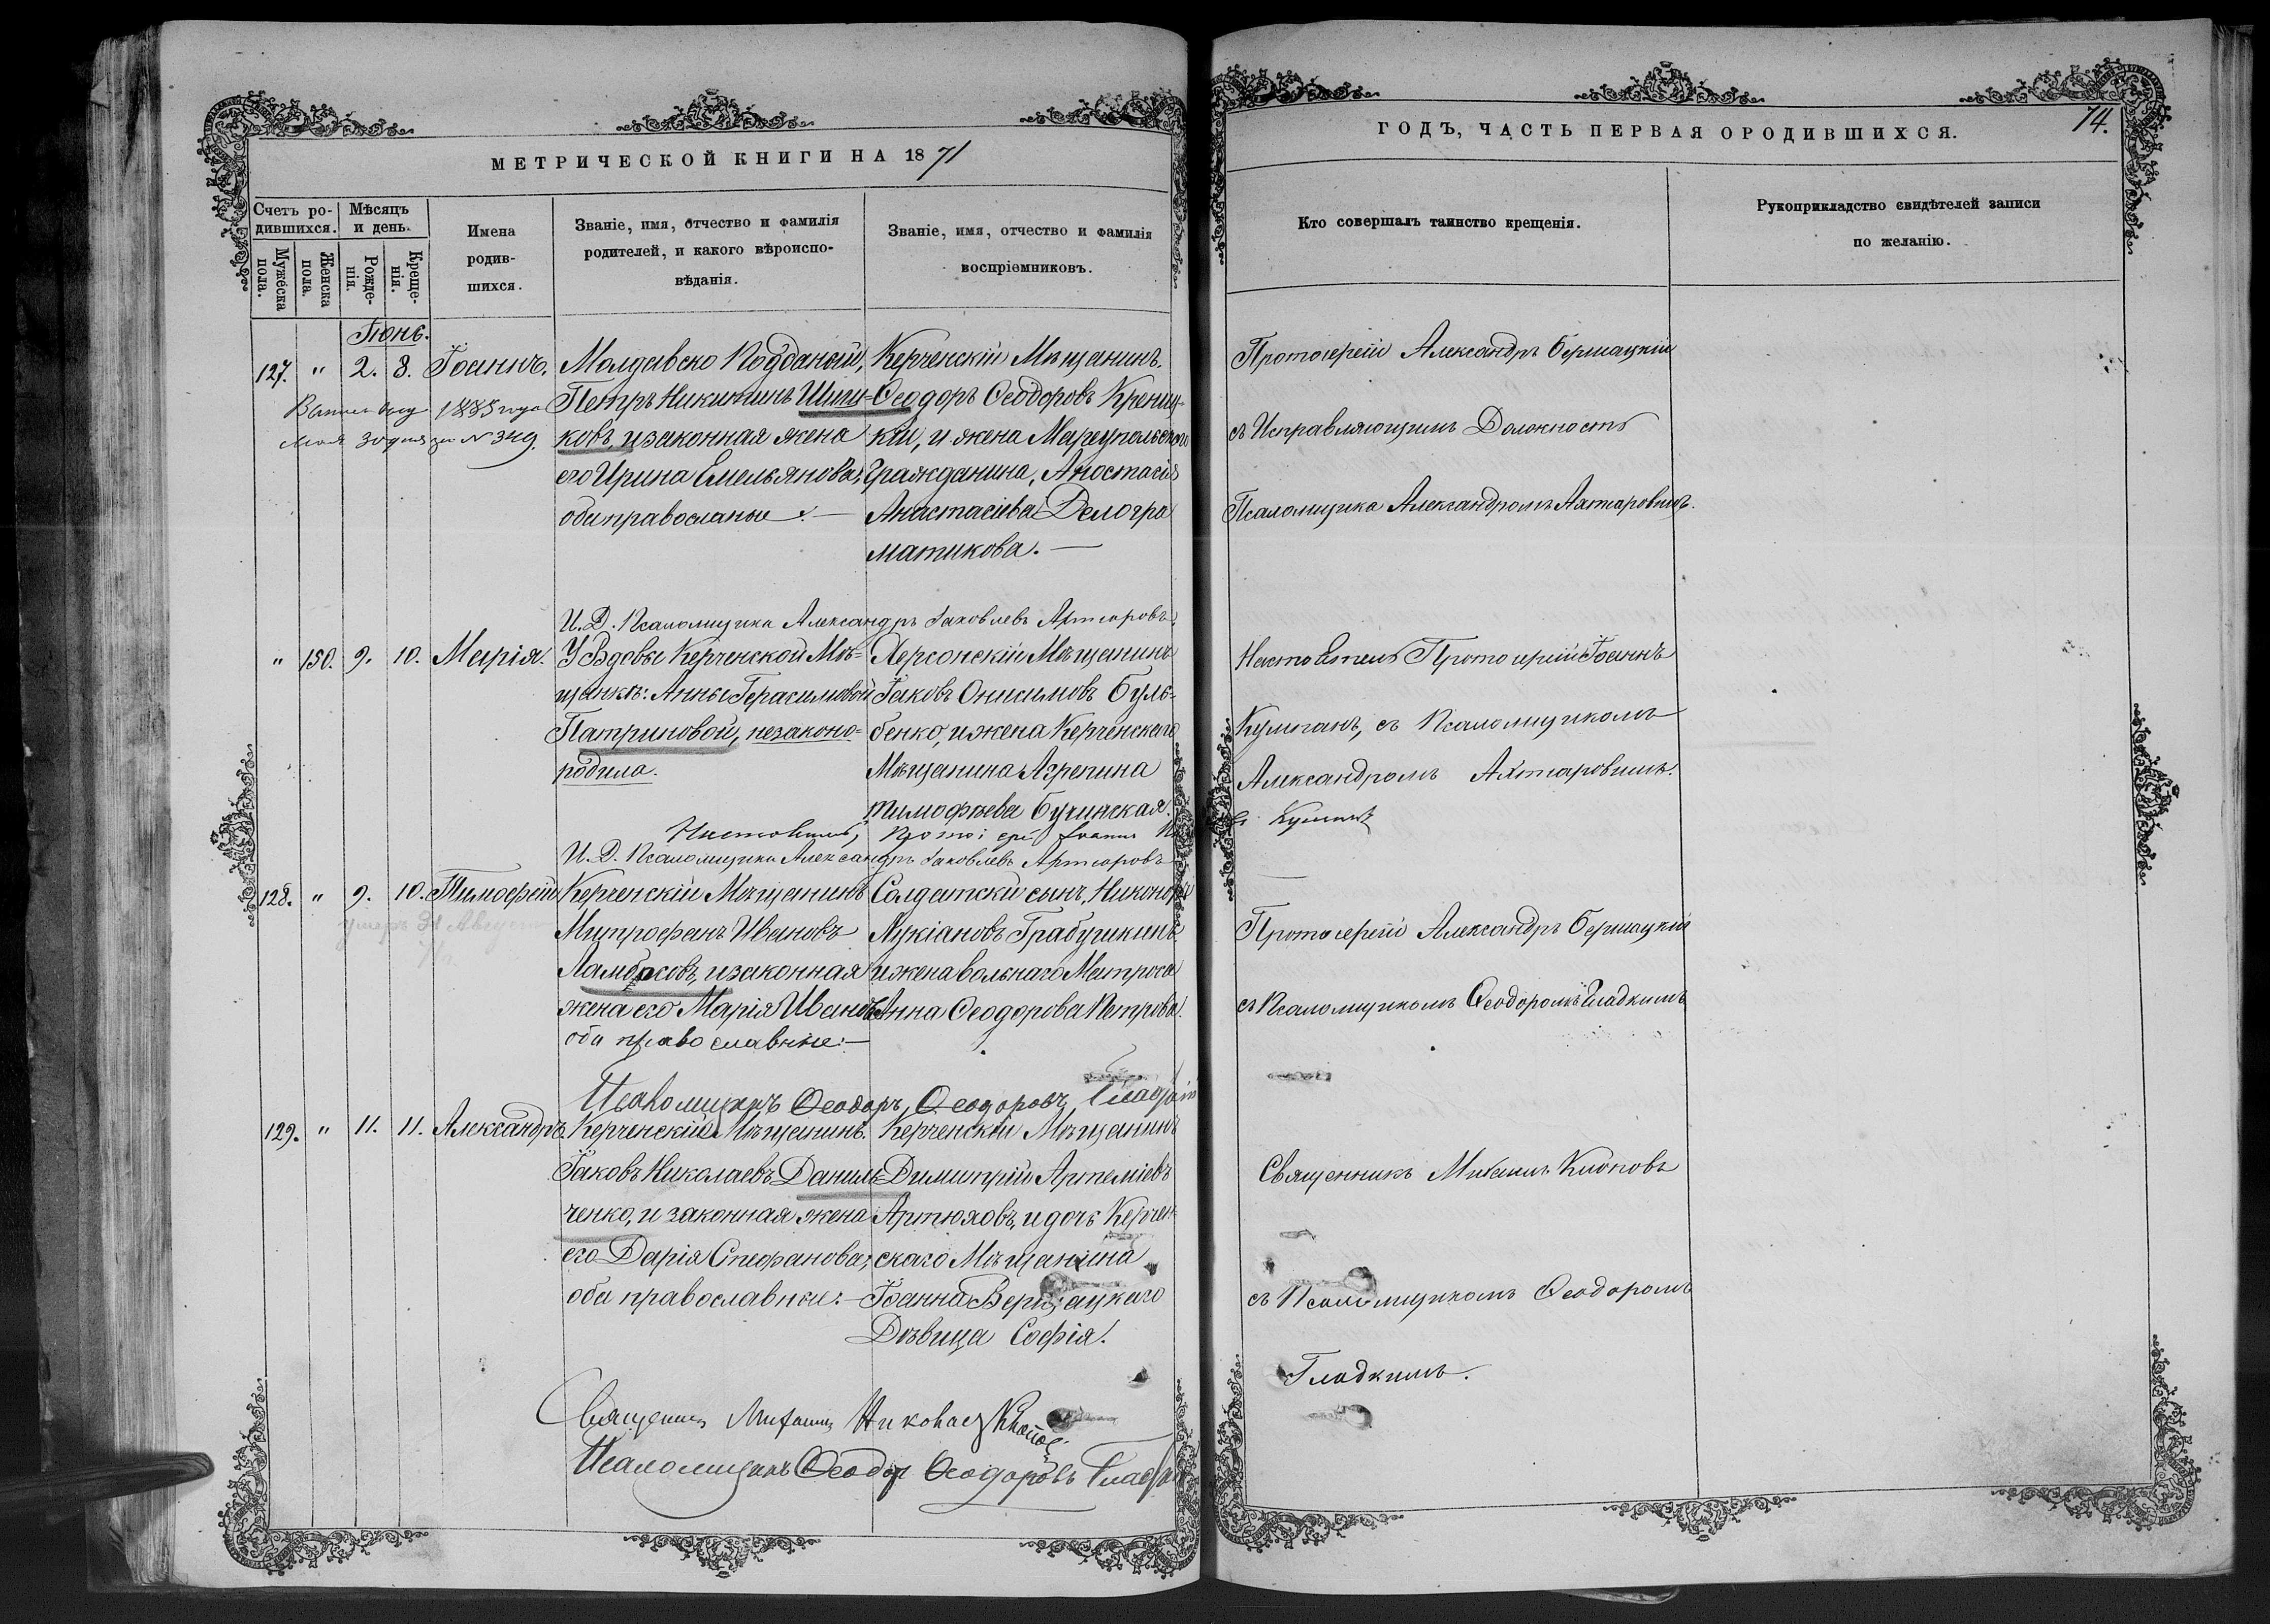 МЕТРИЧЕСКОЙ КНИГИ НА 1871
Счетъ ро-
дившихся.
Мужеска
пола.
Женска
пола.
Мѣсяцъ
и день.
Рожде-
нія.
Креще-
нія.
Имена
родив-
шихся.
Званіе, имя, отчество и фамилія
родителей, и какого вѣроиспо-
вѣданія.
Званіе, имя, отчество и фамилія
воспріемниковъ.
Іюнь.
127. " 2. 8. Іоаннъ.
1885 года
мая 30 дня за N 349.
Молдавско Подданый,
Петръ Никитинъ Шиш-
ковъ, и законная жена
его Ирина Емельянова,
оба православные.—
Керченскій Мѣщанинъ.
Ѳеодоръ Ѳеодоровъ Крениц-
кій, и жена Маріупольскаго
Гражданина, Анастасія
Анастасіева Делогра
матикова.—
И. Д. Псаломщика Александръ Іаковлевъ
" 150. 9. 10. Марія.
У Вдовы Керченской Мѣ-
щанкѣ: Анны Герасимовой
Патриновой, незаконо-
родила.
Херсонскій Мѣщанинъ
Іаковъ Онисимовъ Буль-
бенко, и жена Керченскаго
Мѣщанина Агрепина
Тимофѣева Бучинская.
И. Д. Псаломщика Александръ Іаковлевъ
128. " 9. 10. Тимофей
умеръ
Керченскій Мѣщанинъ
Митрофанъ Ивановъ
Ламбасовъ, и законная
жена его Марія Иванова
оба православные:—
Солдатскій сынъ, Никоноръ
Лукіановъ Грабушкинъ.
и жена вольнаго Матроса
Анна Ѳеодорова Петрова.
Псаломщикъ Ѳеодоръ Ѳеодоровъ Гладкій
129. " 11. 11. Александръ.
Керченскій Мѣщанинъ.
Іаковъ Николаевъ Даниль-
ченко, и законная жена
его Дарія Стефанова,
оба православные:—
Керченскій Мѣщанинъ
Димитрій Артеміевъ
Артюховъ, и дочь Керчен-
скаго Мѣщанина
Іоанна Вершацкаго
Дѣвица Софія.
Священникъ Михаилъ Николаевъ Клоповъ
Псаломщикъ Ѳеодоръ Ѳеодоровъ Гладкій
ГОДЪ, ЧАСТЬ ПЕРВАЯ О РОДИВШИХСЯ.
74.
Кто совершалъ таинство крещенія.
Рукоприкладство свидѣтелей записи
по желанію.
Протоіерей Александръ Бершацкій
съ Исправляющимъ Должность
Псаломщика Александромъ Ахтаровымъ.
Настоятель Протоіерей Іоаннъ
Кумпанъ, съ Псаломщикомъ
Александромъ Ахтаровымъ.
Протоіерей Александръ Бершацкій
съ Псаломщикомъ Ѳеодоромъ Гладкимъ
Священникъ Михаилъ Клоповъ
съ Псаломщикомъ Ѳеодоромъ
Гладкимъ.